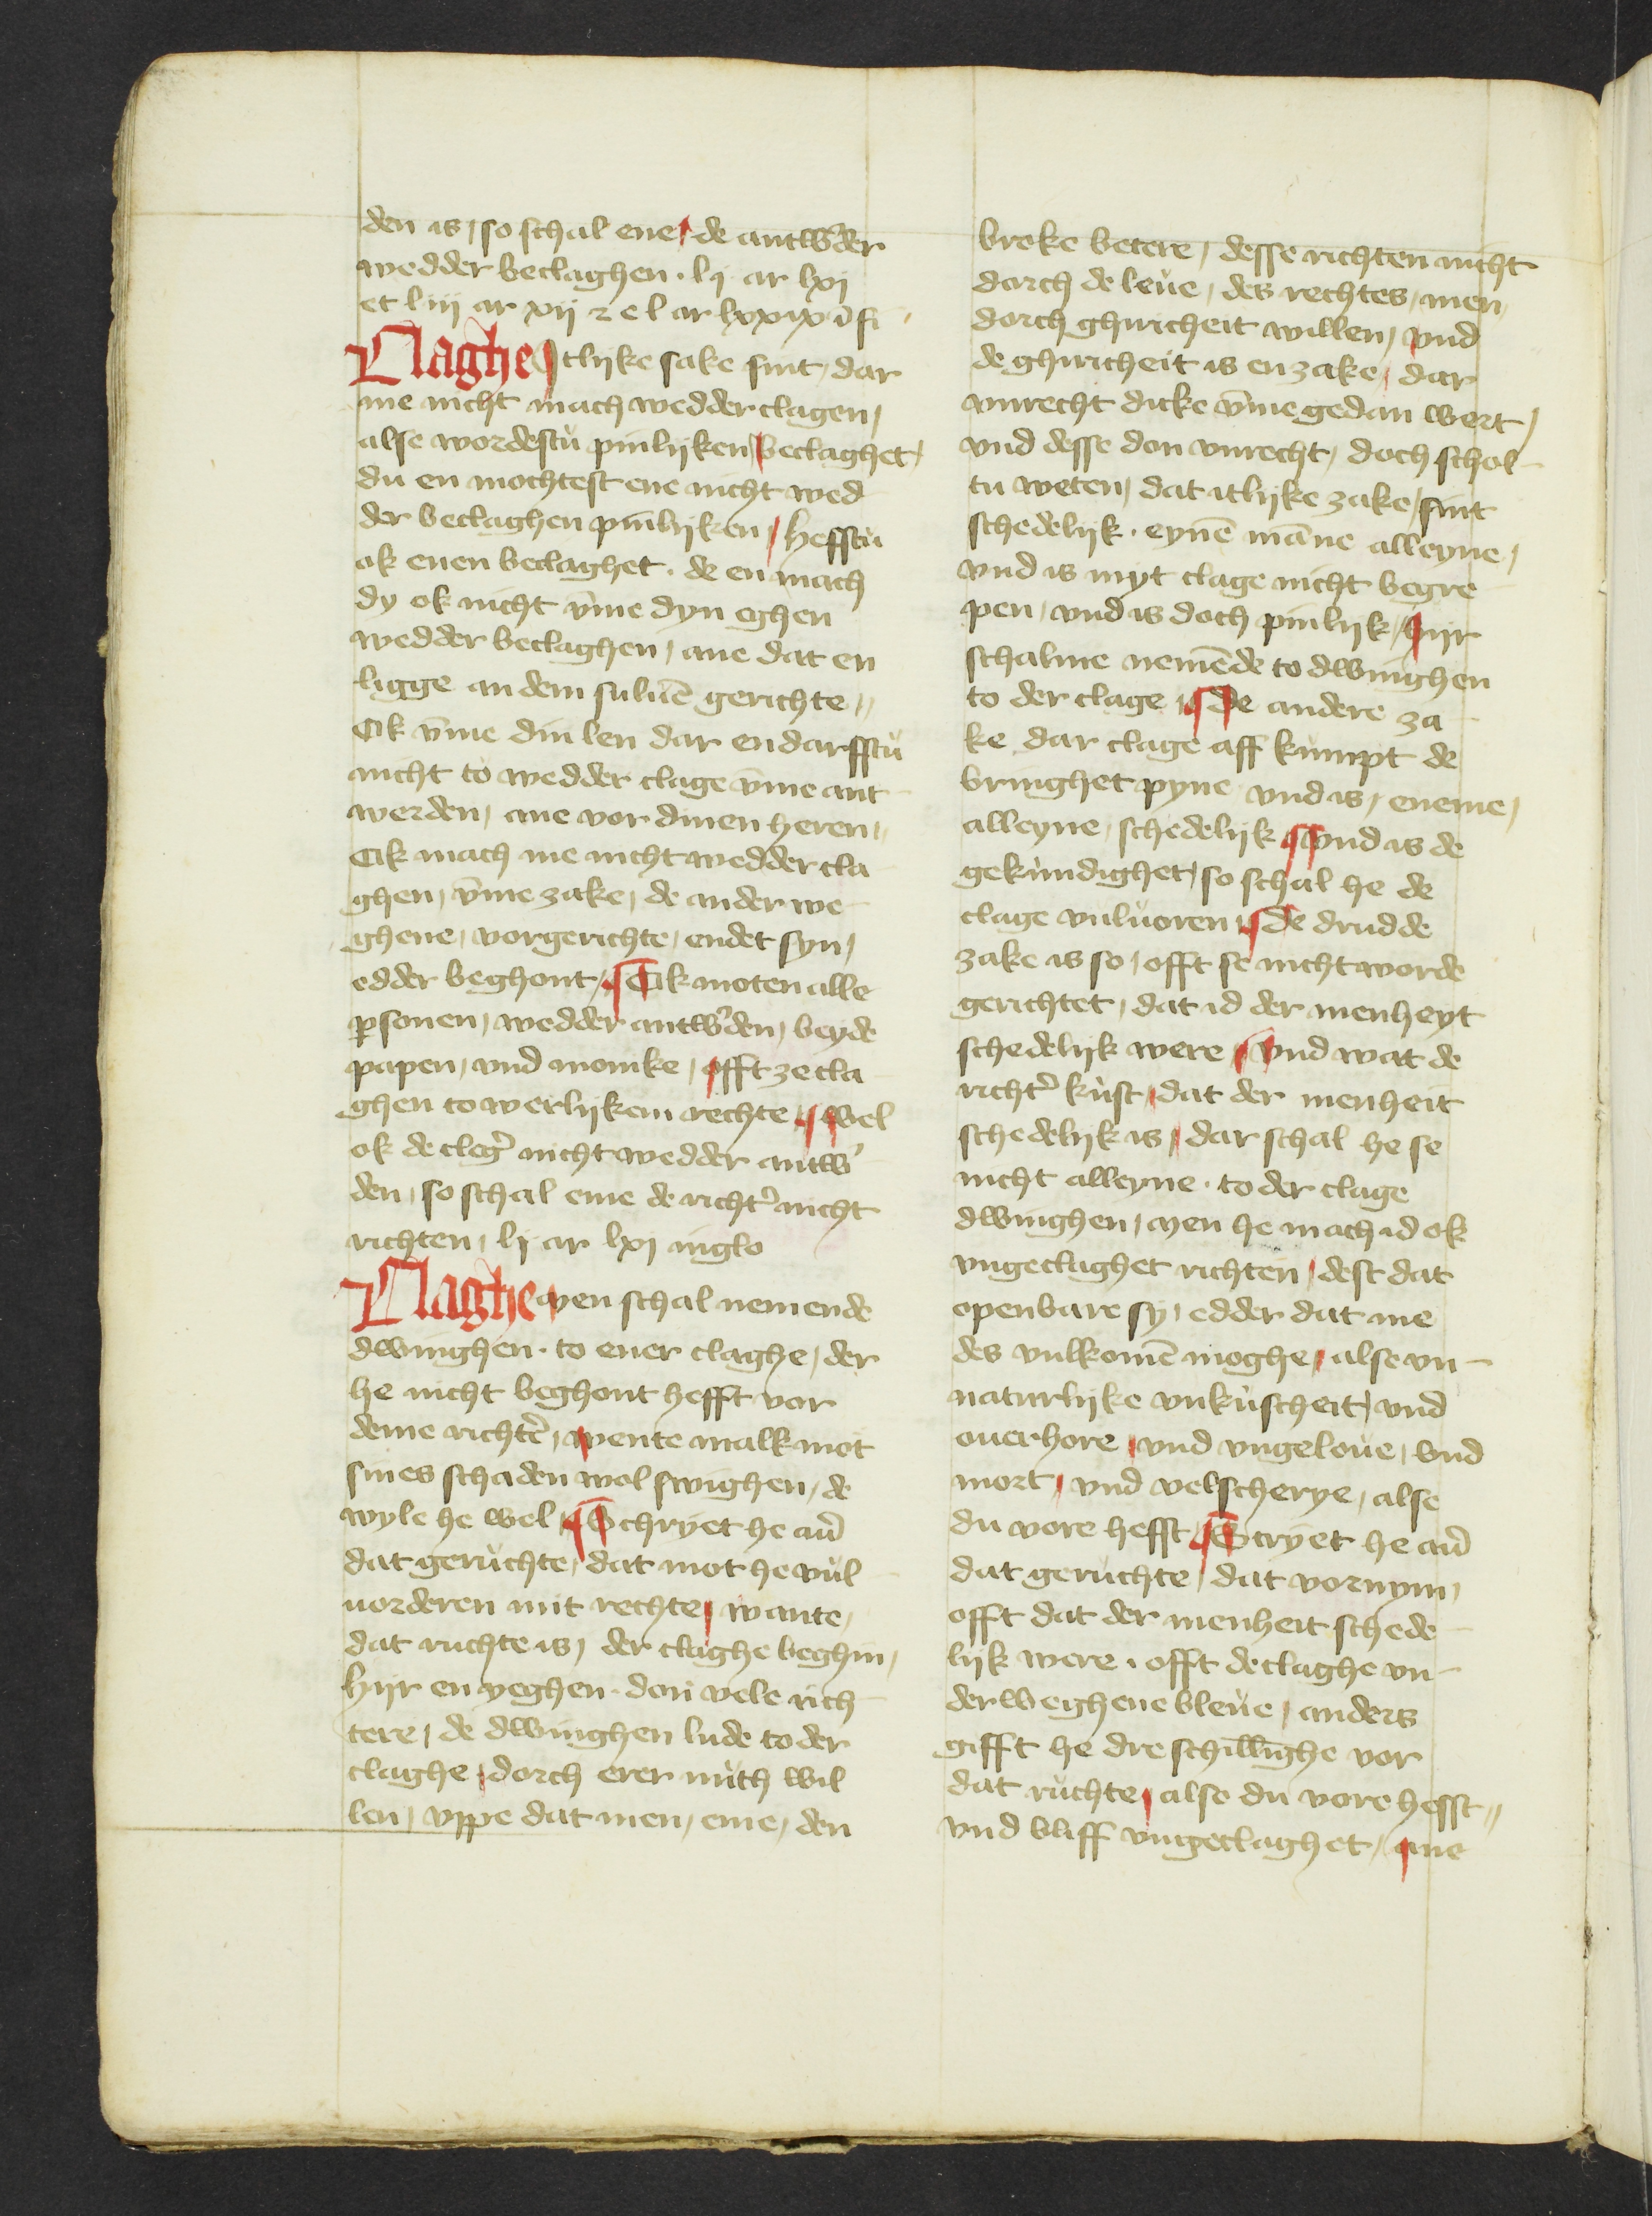 den is / so schal ene / de antw̄der
wedder beclaghen · lj ar lxi
et liij ar xij z e l ar lxxix ī fi
Claghe Etlijke sake sint / dar
me nicht mach wedder clagen /
alse wordestu pinlijken beclaghet /
du en mochtest ene nicht wed
der beclaghen pinlijken / hefftu
ok enen beclaghet · de en mach
dy ok nicht v̄me dyn eghen
wedder beclaghen / ane dat en
ligge an dem suluē gerichte //
Ok v̄me din len dar en darfftu
nicht to wedder clage v̄me ant
werden / ane vor dinen heren //
Ok mach me nicht wedder cla
ghen / v̄me zake / de ander we
ghene / vorgerichte / endet syn /
edder beghont / Ok moten alle
ꝑsonen / wedder antw̓den / beyde
papen / vnd monike / offt ze cla
ghen to werlijkem rechte / wel
ok de cleg̓ nicht wedder antw̓
den / so schal eme de richt̓ nicht
richten / lj ar lxj in glo
Claghe men schal nemende
dwinghen · to ener claghe / der
he nicht beghont hefft vor
deme richt̓e / wente malk mot
sines schaden wol swighen / de
wyle he wel / Schryet he au̓
dat geruchte / dat mot he vul
uorderen mit rechte / wante /
dat ruchte is / der claghe beghin /
hijr en yeghen · don vele rich
tere / de dwinghen lude to der
claghe / dorch erer nuth wil
len / vppe dat men / eme / den
broke betere / desse richten nicht
dorch de leue / des rechtes / men /
dorch ghiricheit willen / vnd
de ghiricheit is en zake / dar
vnrecht dicke v̄me gedan wert /
vnd desse don vnrecht / doch schol
tu weten / dat itlijke zake / sint
schedelijk · eynē māne alleyne /
vnd is myt clage nicht begre
pen / vnd is doch pinlijk / hijr
schalme nemēde to dwinghen
to der clage / De andere za
ke dar clage aff kumpt de
bringhet pyne vnd is / eneme /
alleyne / schedelijk vnd is de
gekundighet / so schal he de
clage vulvoren / De drudde
zake is so / offt se nicht worde
gerichtet / dat id der menheyt
schedelijk were / vnd wat de
richt̓ kust / dat der menheit
schedelijk is / dar schal he se
nicht alleyne · to der clage
dwinghen / men he mach id ok
vngeclaghet richten / dest dat
openbare sy / edder dat me
des vulkomē moghe / alse vn
naturlijke vnkuscheit / vnd
ouerhore / vnd vngeloue / vnd
mort / vnd velscherye / alse
du vore hefft / Scryet he au̓
dat geruchte / dat vornym /
offt dat der menheit schede
lijk were · offt de claghe vn
derweghene bleue / anders
gifft he dre schillīghe vor
dat ruchte / alse du vore hefft //
vnd bliff vngeclaghet / ane